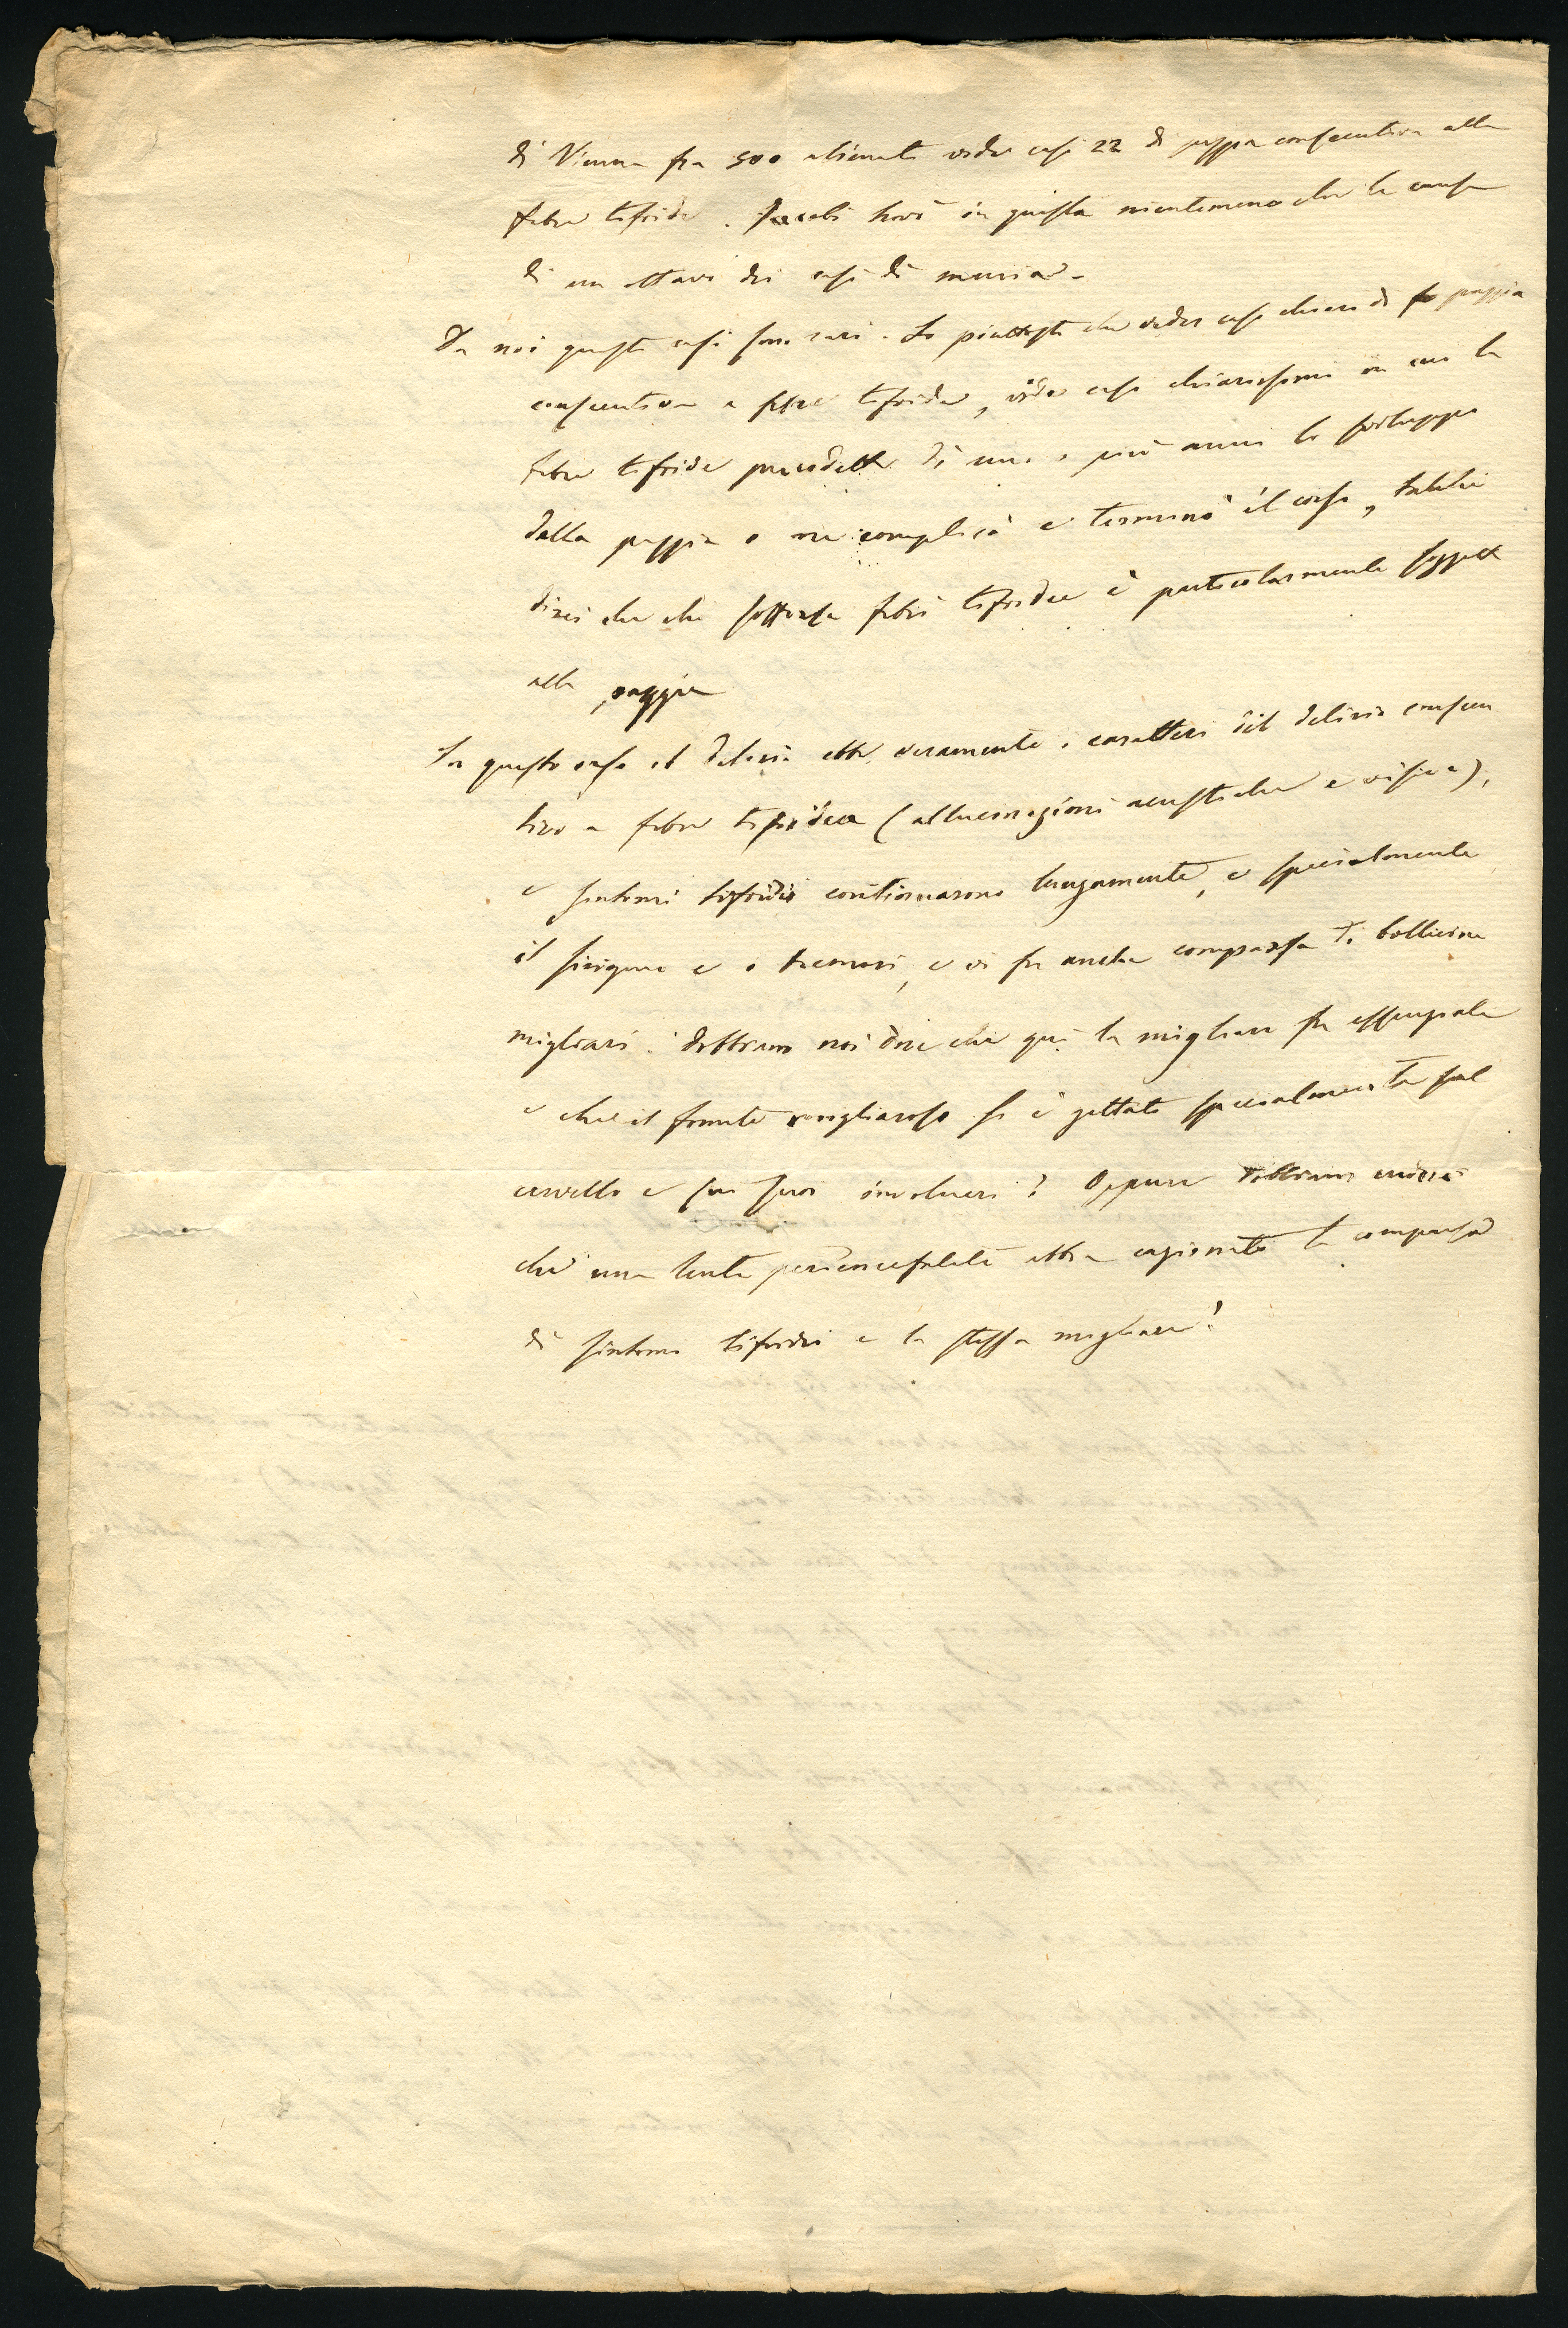 di Vienna fra 500 alienati vide casi 22 di pazzia consecutiva alla
febre tifoidea. Jacobi trovò in questa nientemeno che la causa
di un ottavo dei casi di mania.
Da noi questi casi sono rari. Io piuttosto che veder casi chiari di pazzia
consecutiva a febre tifoidea, vidi casi chiarissimi in cui la
febre tifoidea precedette di uno o più anni lo sviluppo
della pazzia o ne complicò e terminò il corso, talchè
direi che chi sofferse febri tifoidee è particolarmente soggetto
alla pazzia
In questo caso il delirio ebbe veramente i caratteri del delirio consecu
tivo a febre tifoidea (allucinazioni acustiche e visive),
e sintomi tifoidei continuarono lungamente, e specialmente
il e i tremori, e vi fu anche comparsa di bollicine
migliari. Dobbiamo noi dire che qui la migliare fu
e che il fomite migliaroso si è gettato specialmente sul
cervello e su suoi involucri? Oppure dobbiamo credere
che una lenta periencefalite abbia cagionato la comparsa
di sintomi tifoidei e la stessa migliare?